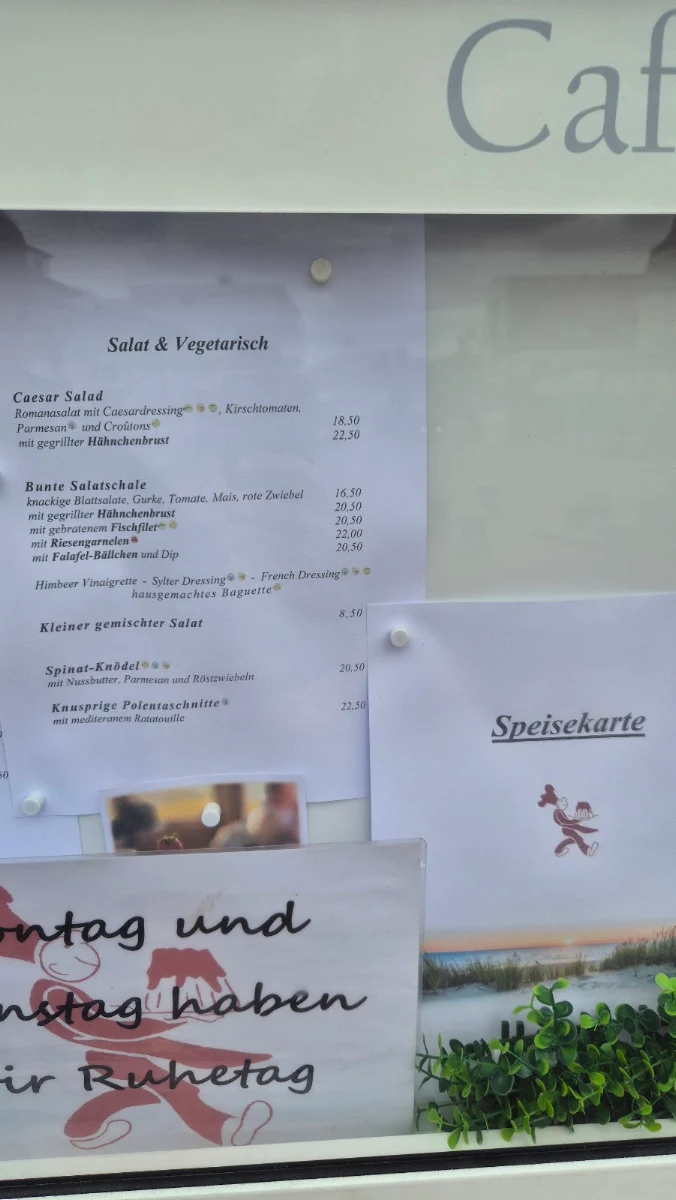 Caf
Salat & Vegetarisch
Caesar Salad
Romanasalat mit Caesardressing, Kirschtomaten,
Parmesan und Croûtons 18,50
mit gegrillter Hähnchenbrust 22,50
Bunte Salatschale
knackige Blattsalate, Gurke, Tomate, Mais, rote Zwiebel 16,50
mit gegrillter Hähnchenbrust 20,50
mit gebratenem Fischfilet 20,50
mit Riesengarnelen 22,00
mit Falafel-Bällchen und Dip 20,50
Himbeer Vinaigrette - Sylter Dressing - French Dressing
hausgemachtes Baguette
Kleiner gemischter Salat 8,50
Spinat-Knödel 20,50
mit Nussbutter, Parmesan und Röstzwiebeln
Knusprige Polentaschnitte 22,50
mit mediteranem Ratatouille
50
Speisekarte
ontag und
nstag haben
ir Ruhetag